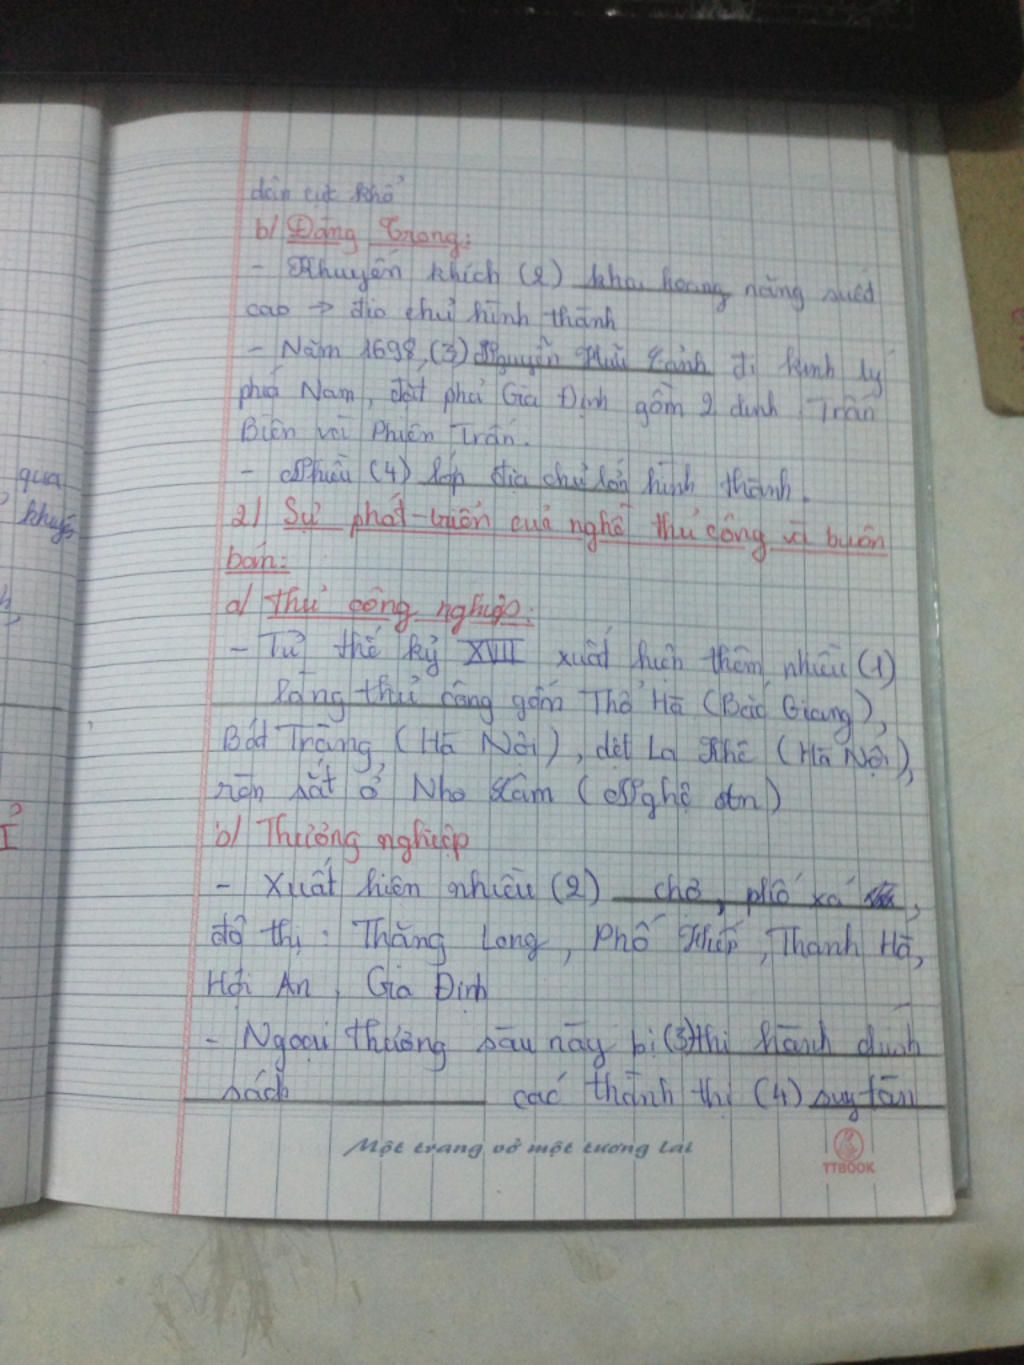 dân cực khổ
b/ Đàng Trong:
- Khuyến khích (2) khai hoang năng suất
cao → địa chủ hình thành
- Năm 1698, (3) Nguyễn Hữu Cảnh đi kinh lý
phía Nam, đặt phủ Gia Định gồm 2 dinh Trấn
Biên và Phiên Trấn.
- Nhiều (4) lớp địa chủ lớn hình thành.
2/ Sự phát triển của nghề thủ công và buôn
bán:
a/ Thủ công nghiệp:
- Từ thế kỷ XVII xuất hiện thêm nhiều (1)
làng thủ công gốm Thổ Hà (Bắc Giang),
Bát Tràng (Hà Nội), dệt La Khê (Hà Nội),
rèn sắt ở Nho Lâm (Nghệ An)
b/ Thương nghiệp
- Xuất hiện nhiều (2) chợ, phố xá,
đô thị: Thăng Long, Phố Hiến, Thanh Hà,
Hội An, Gia Định
- Ngoại thương sau này bị (3) thi hành chính
sách các thành thị (4) suy tàn
Một trang vở một tương lai
TTBOOK
qua
khuyến